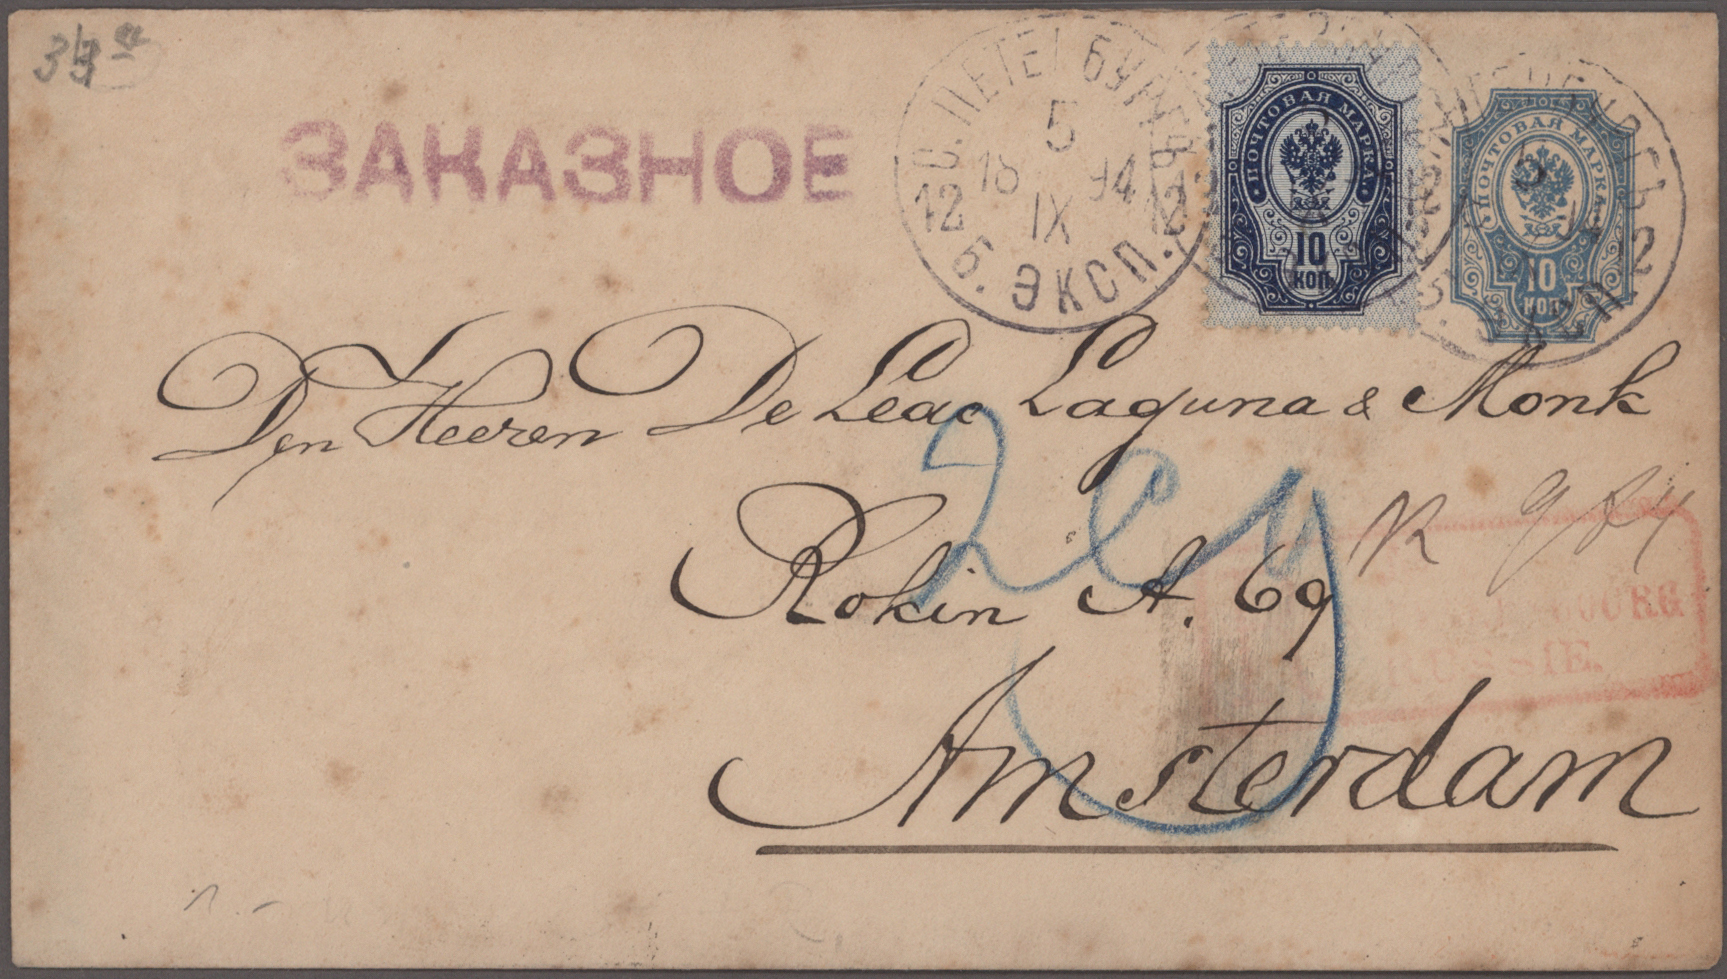 ЗАКАЗНОЕ
С. ПЕТЕРБУРГЪ
5
18 94
IX
12 12
Б. ЭКСП.
ПОЧТОВАЯ МАРКА
10
КОП
ПОЧТОВАЯ МАРКА
10
КОП
Den Heeren De Leao Laguna & Monk
R 984
Rokin A. 69
RUSSIE.
Amsterdam